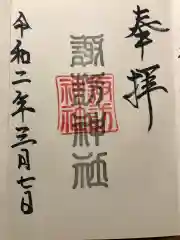 奉拝
諏訪神社
令和二年三月七日